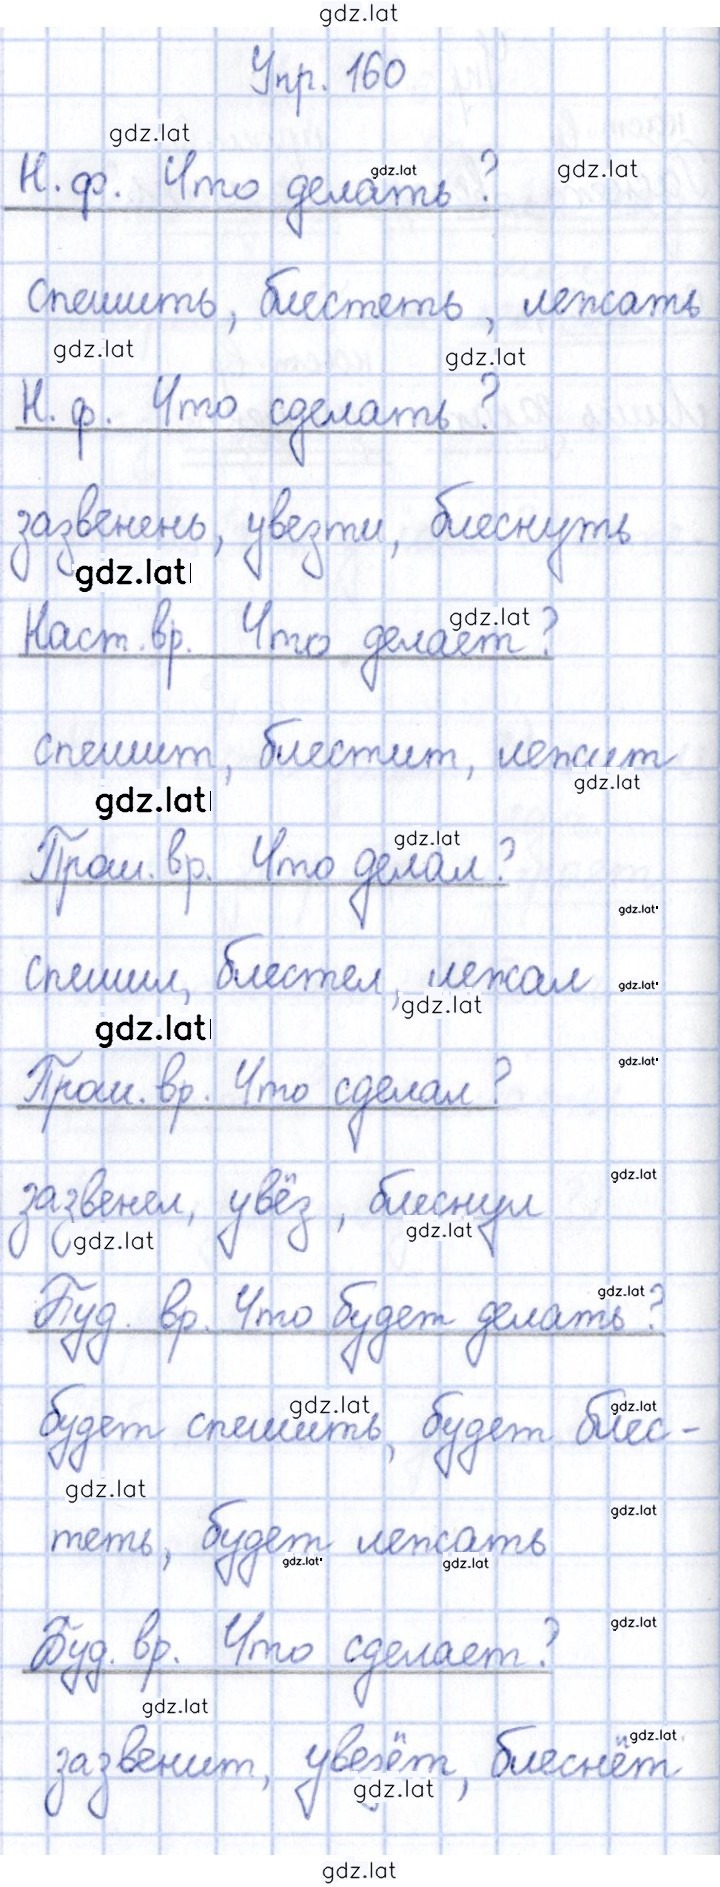 gdz.lat
Упр. 160
gdz.lat
gdz.lat
gdz.lat
Н. ф. Что делать?
спешить, блестеть, лежать
gdz.lat
gdz.lat
Н. ф. Что сделать?
зазвенень, увезти, блеснуть
gdz.lat
gdz.lat
Наст. вр. Что делает?
спешит, блестит, лежит
gdz.lat
gdz.lat
gdz.lat
Прош. вр. Что делал?
gdz.lat
спешил, блестел, лежал
gdz.lat
gdz.lat
gdz.lat
gdz.lat
Прош. вр. Что сделал?
gdz.lat
зазвенел, увёз, блеснул
gdz.lat
gdz.lat
gdz.lat
Буд. вр. Что будет делать?
gdz.lat
gdz.lat
будет спешить, будет блес-
gdz.lat
gdz.lat
теть, будет лежать
gdz.lat
gdz.lat
gdz.lat
Буд. вр. Что сделает?
gdz.lat
gdz.lat
зазвенит, увезёт, блеснёт
gdz.lat
gdz.lat